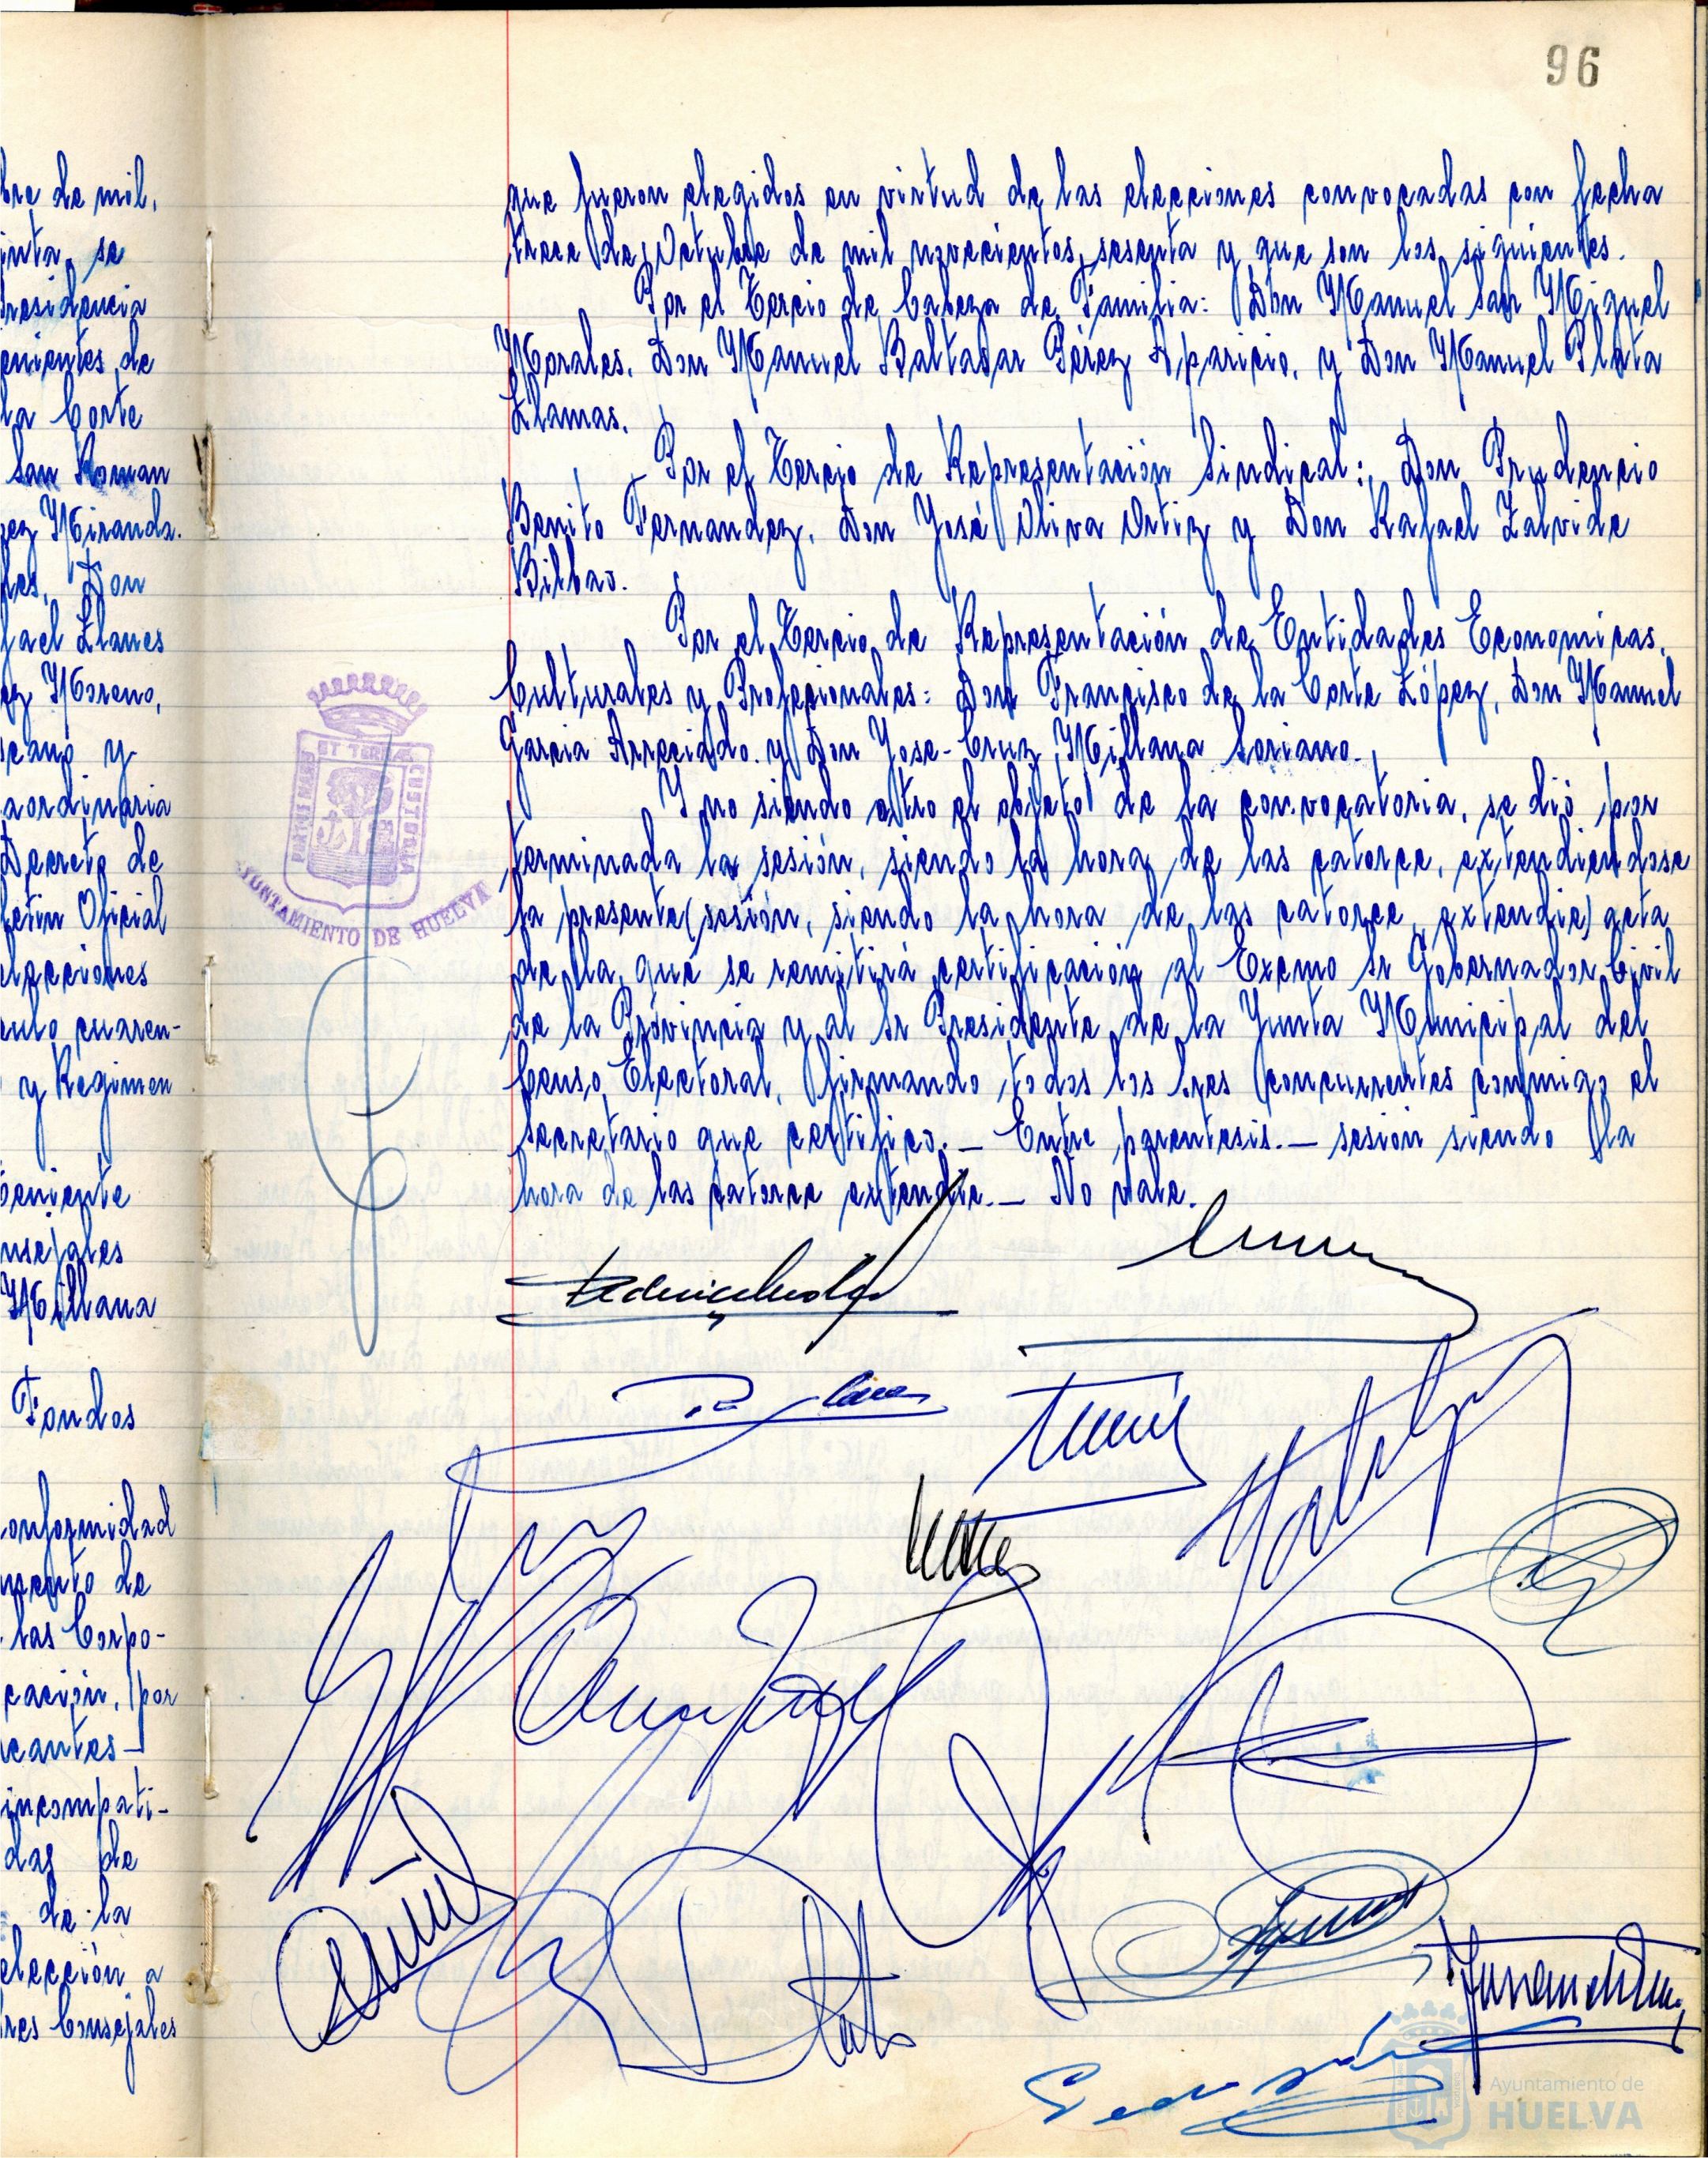 96
bre de mil,
inta, se
residencia
enientes de
la Corte
San Roman
ez Miranda.
les, Don
fael Llanes
ez Moreno,
cano y
aordinaria
Decreto de
letin Oficial
elecciones
culo cuaren-
y Regimen
Teniente
nsejales
Millana
Fondos
conformidad
mento de
las Corpo-
cación, por
icantes-
incompati-
das de
de la
elección a
res Consejales
que fueron elegidos en virtud de las elecciones convocadas con fecha
trece de Octubre de mil novecientos sesenta y que son los siguientes.
Por el Tercio de Cabeza de Familia: Don Manuel San Miguel
Morales, Don Manuel Baltasar Pérez Aparicio, y Don Manuel Plata
Llamas.
Por el Tercio de Representación Sindical: Don Prudencio
Benito Fernandez, Don José Oliva Ortiz y Don Rafael Zalvide
Bilbao.
Por el Tercio de Representación de Entidades Economicas,
Culturales y Profecionales: Don Francisco de la Corte López, Don Manuel
Garcia Arreciado y Don Jose-Cruz Millana Soriano.
Y no siendo otro el objeto de la convocatoria, se dió por
terminada la sesión, siendo la hora de las catorce, extendiendose
la presente (sesión, siendo la hora de las catorce, extendie) acta
de la que se remitirá certificación al Excmo Sr Gobernador Civil
de la Provincia y al Sr Presidente de la Junta Municipal del
Censo Electoral, firmando todos los Sres concurrentes conmigo el
Secretario que certifico.- Entre parentesis.- sesión siendo la
hora de las catorce extendie.- No vale.
PORTUS MARIS ET TERRAE CUSTODIA
AYUNTAMIENTO DE HUELVA
Plata
Ayuntamiento de
HUELVA